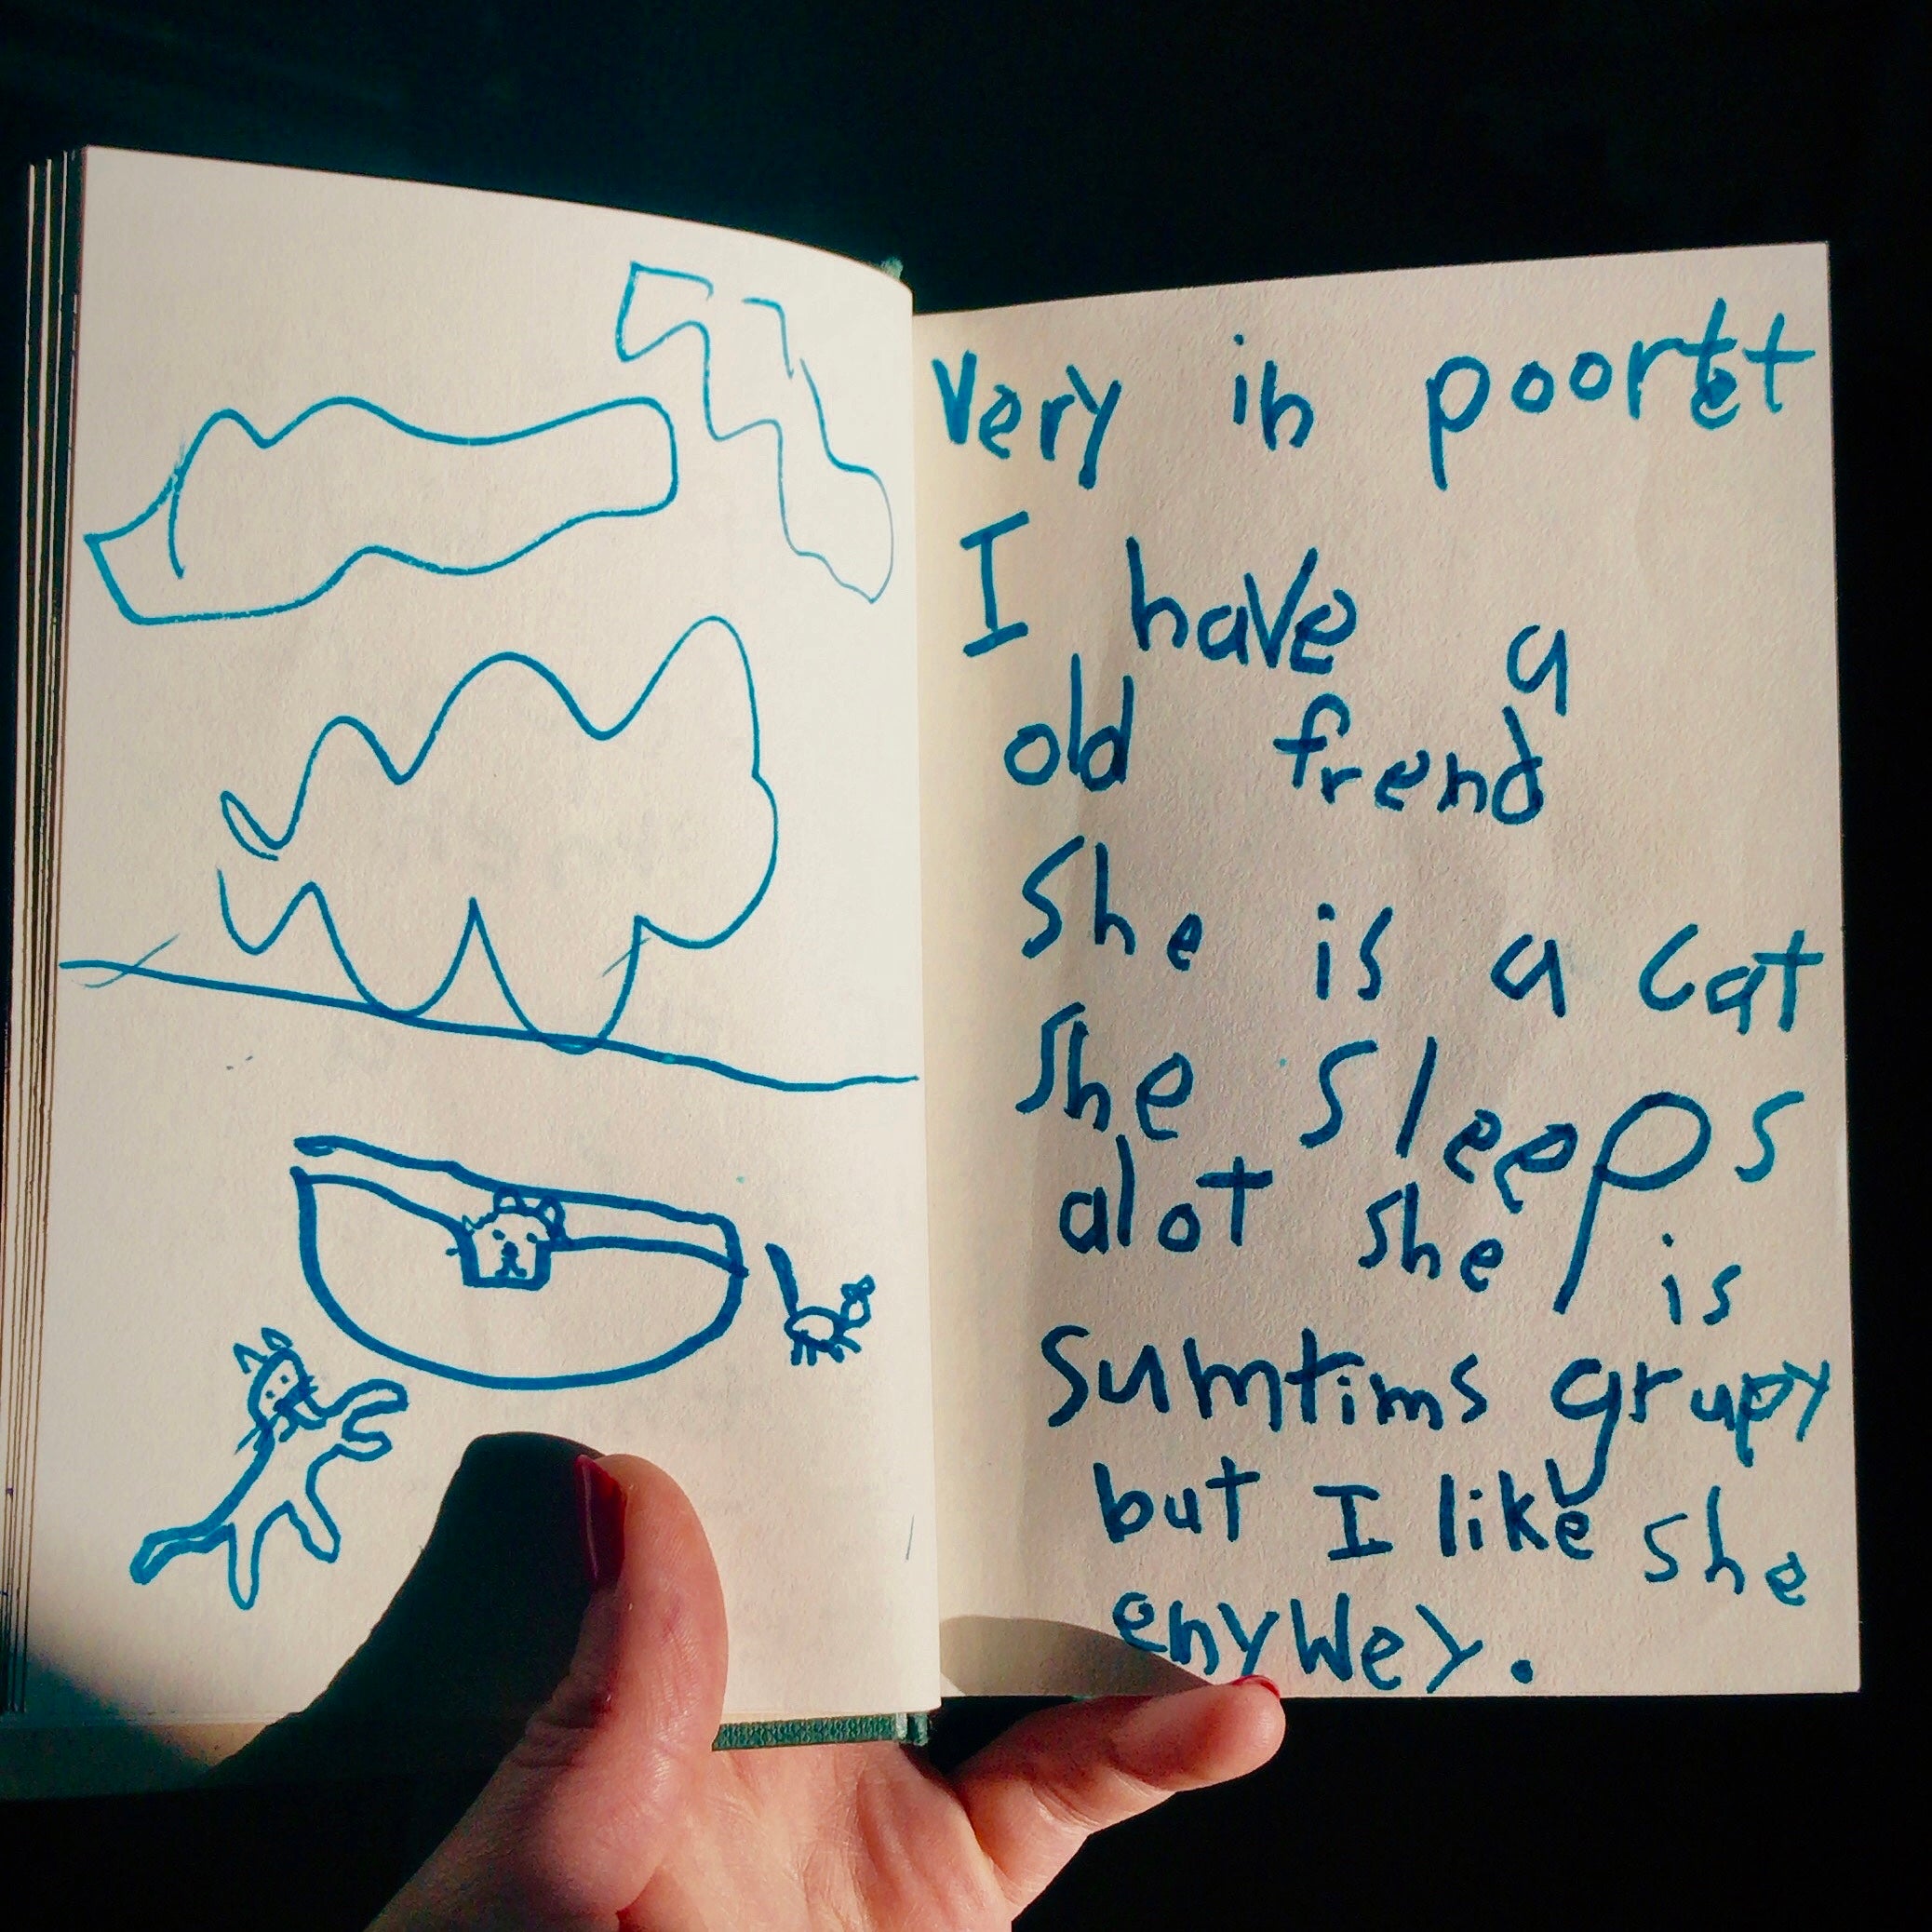 Very in poortet
I have a
old frend
She is a cat
She Sleeps
alot She is
Sumtims grupy
but I like She
enywey.